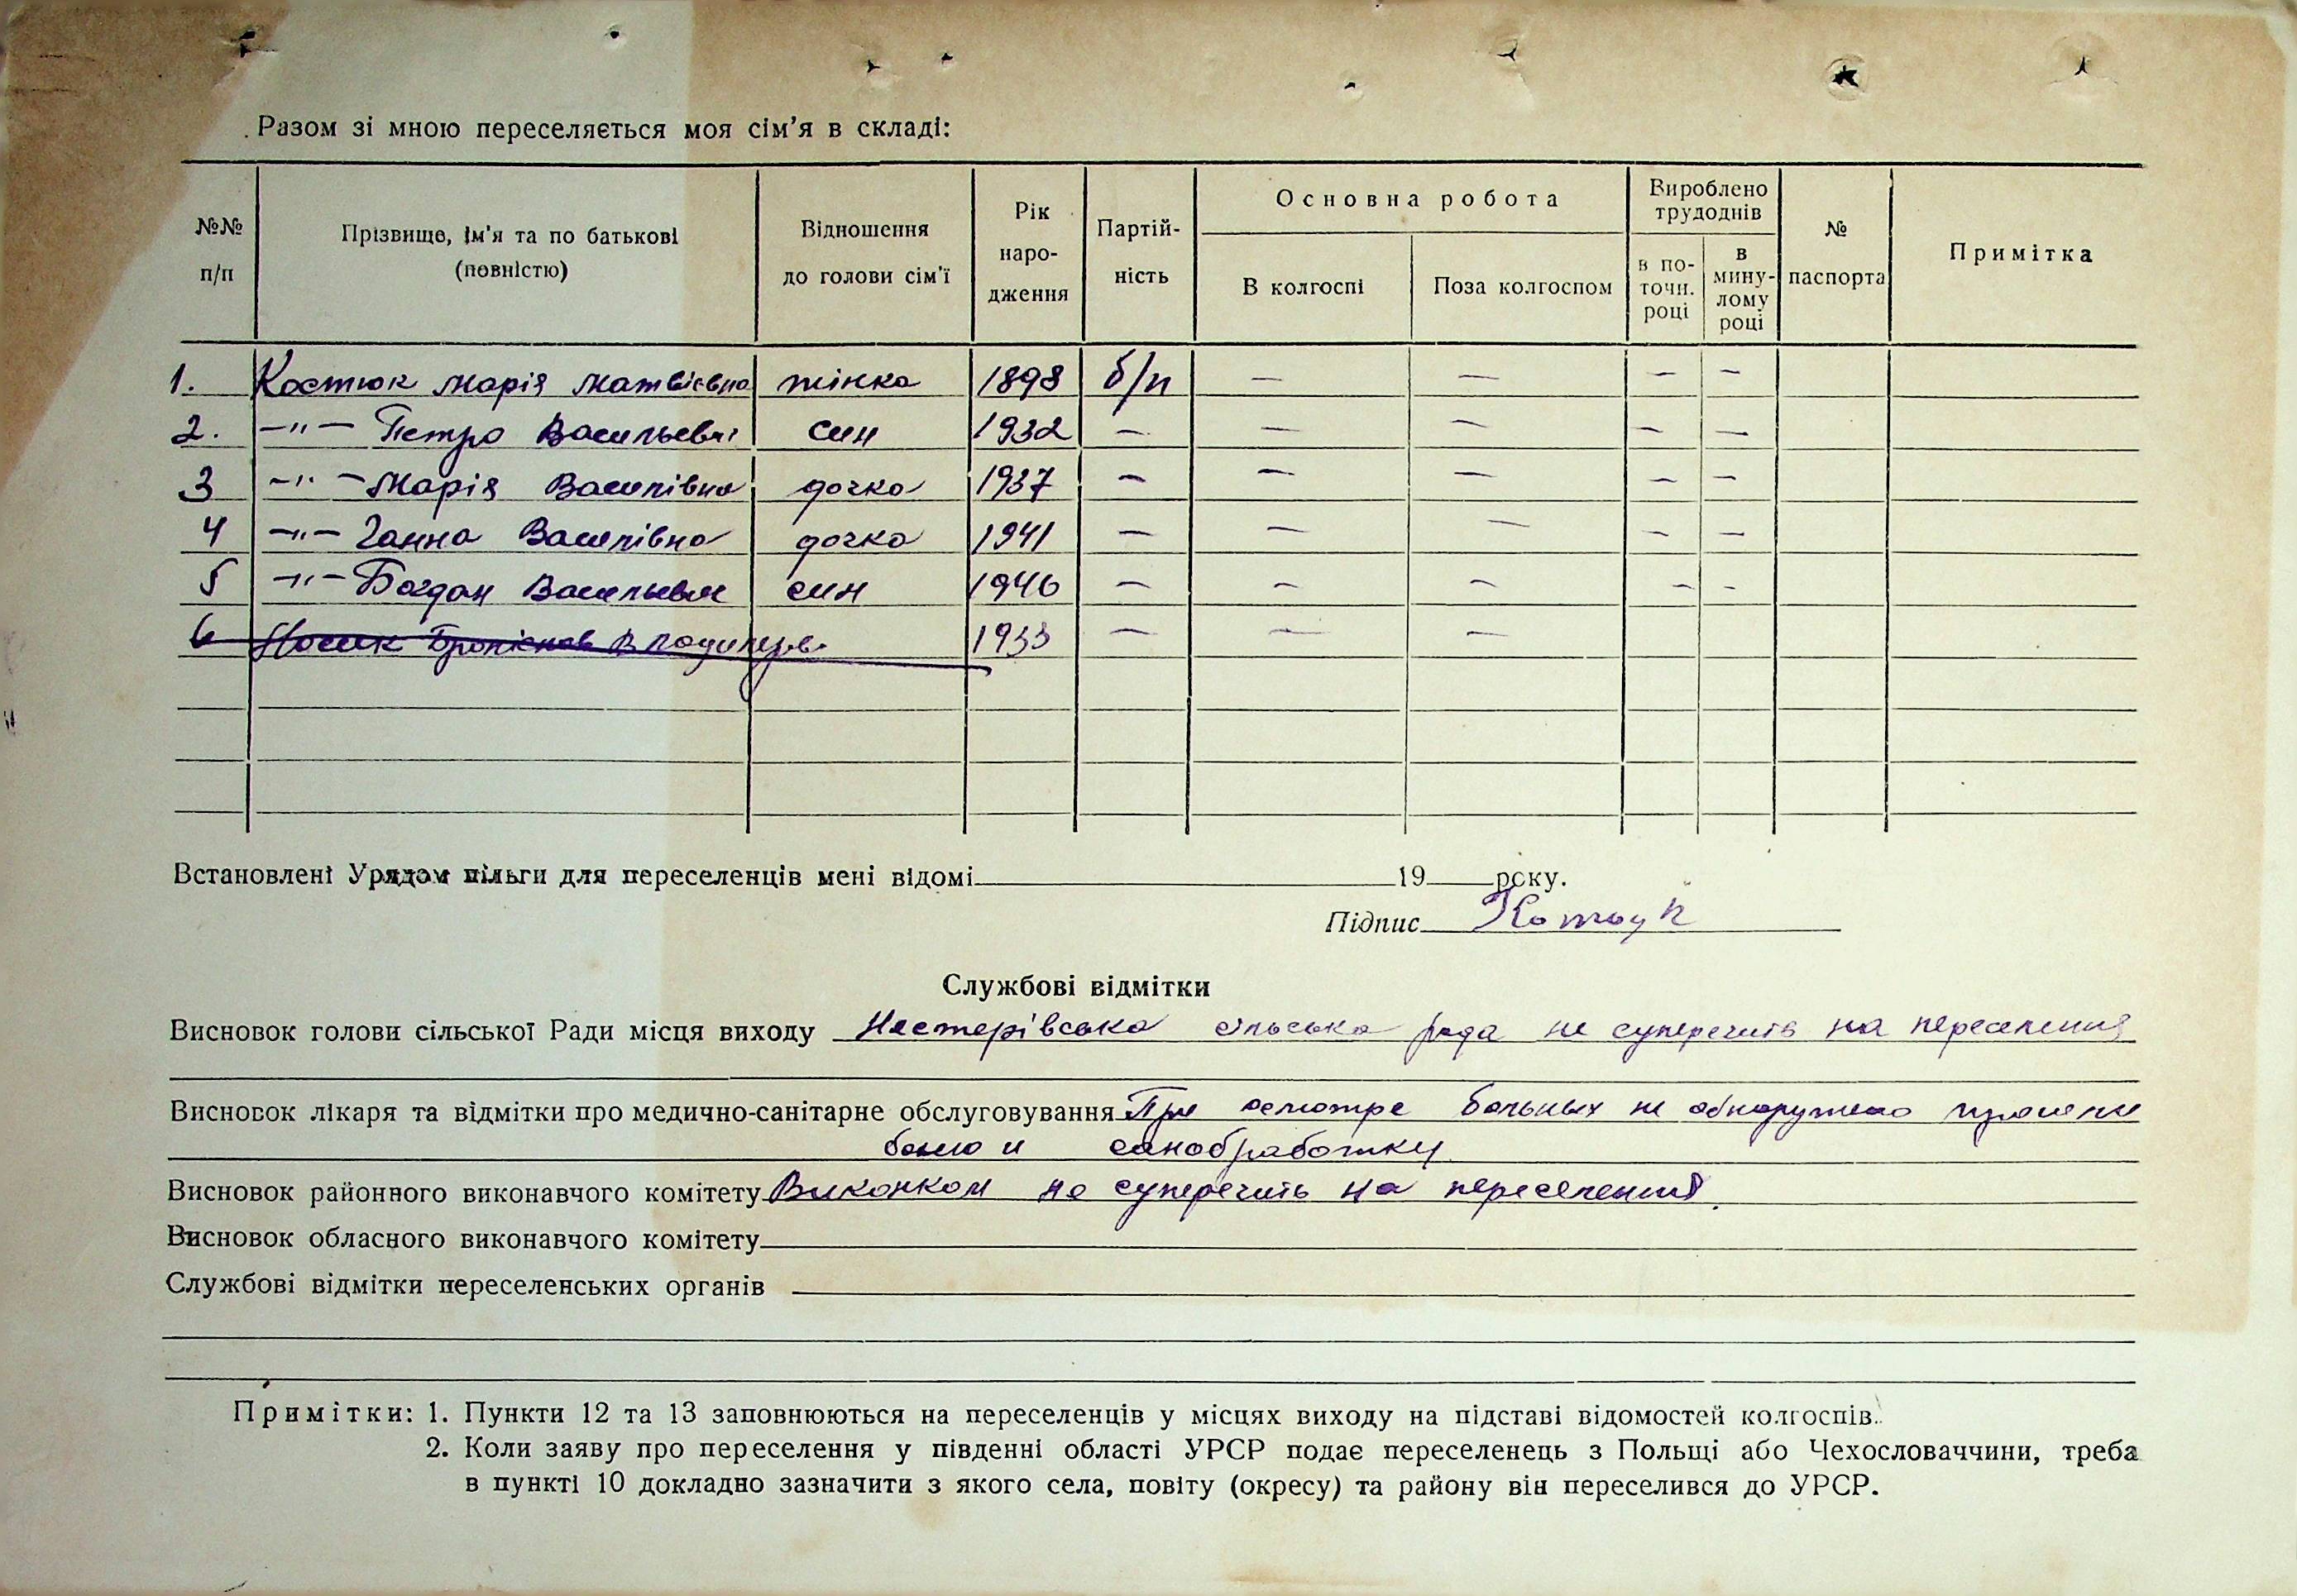 Разом зі мною переселяється моя сім'я в складі:
№№ п/п | Прізвище, ім'я та по батькові (повністю) | Відношення до голови сім'ї | Рік народження | Партійність | Основна робота | Вироблено трудоднів | № паспорта | Примітка
В колгоспі | Поза колгоспом | в поточн. році | в минулому році
1. Костюк Марія Матвієвна жінка 1898 б/п — — — —
2. —"— Петро Васильевич син 1932 — — — — —
3 —"— Марія Василівна дочка 1937 — — — — —
4 —"— Ганна Василівна дочка 1941 — — — — —
5 —"— Богдан Васильевич син 1946 — — — — —
6 Носик 1933 — — —
Встановлені Урядом пільги для переселенців мені відомі 19 року.
Підпис
Службові відмітки
Висновок голови сільської Ради місця виходу Нестерівська сільська рада не суперечить на переселення
Висновок лікаря та відмітки про медично-санітарне обслуговування При осмотре больных не обнаружено прошли
баню и санобработку
Висновок районного виконавчого комітету Виконком не суперечить на переселення.
Висновок обласного виконавчого комітету
Службові відмітки переселенських органів
Примітки: 1. Пункти 12 та 13 заповнюються на переселенців у місцях виходу на підставі відомостей колгоспів.
2. Коли заяву про переселення у південні області УРСР подає переселенець з Польщі або Чехословаччини, треба
в пункті 10 докладно зазначити з якого села, повіту (округу) та району він переселився до УРСР.